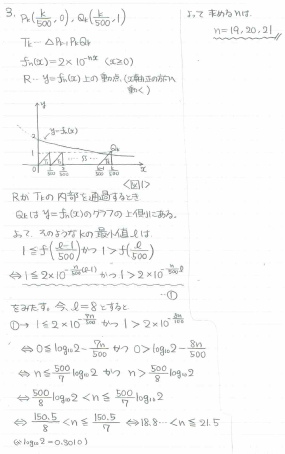 3. P_k(k/500, 0), Q_k(k/500, 1)
T_k … △P_{k-1}P_kQ_k
f_n(x) = 2×10^{-nx} (x≧0)
R… y=f_n(x)上の動点(x軸正の方へ動く)
y
2
y=f_n(x)
1
Q_k
0
1/500 2/500 … k-1/500 k/500 x
<図1>
RがT_kの内部を通過するとき
Q_kはy=f_n(x)のグラフの上側にある。
よって、そのようなkの最小値lは、
1≦f(l-1/500)かつ1>f(l/500)
⇔1≦2×10^{-n/500(l-1)}かつ1>2×10^{-n/500 l}
―①
をみたす。今、l=8とすると
①→ 1≦2×10^{-7n/500}かつ1>2×10^{-8n/500}
⇔0≦log₁₀2-7n/500 かつ 0>log₁₀2-8n/500
⇔n≦500/7 log₁₀2 かつ n>500/8 log₁₀2
⇔500/8 log₁₀2<n≦500/7 log₁₀2
⇔150.5/8<n≦150.5/7 ⇔18.8…<n≦21.5
(∵log₁₀2=0.3010)
よって求めるnは、
n=19,20,21